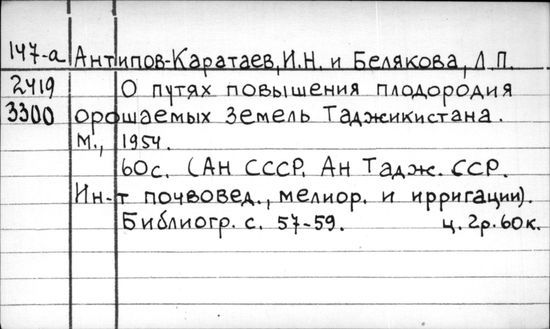 147-а Антипов-Каратаев, И.Н. и Белякова, Л.П.
2419 О путях повышения плодородия
3300 орошаемых земель Таджикистана.
М., 1954.
60с. (АН СССР. АН Тадж. ССР.
Ин-т почвовед., мелиор. и ирригации).
Библиогр. с. 57-59. ц. 2р. 60к.